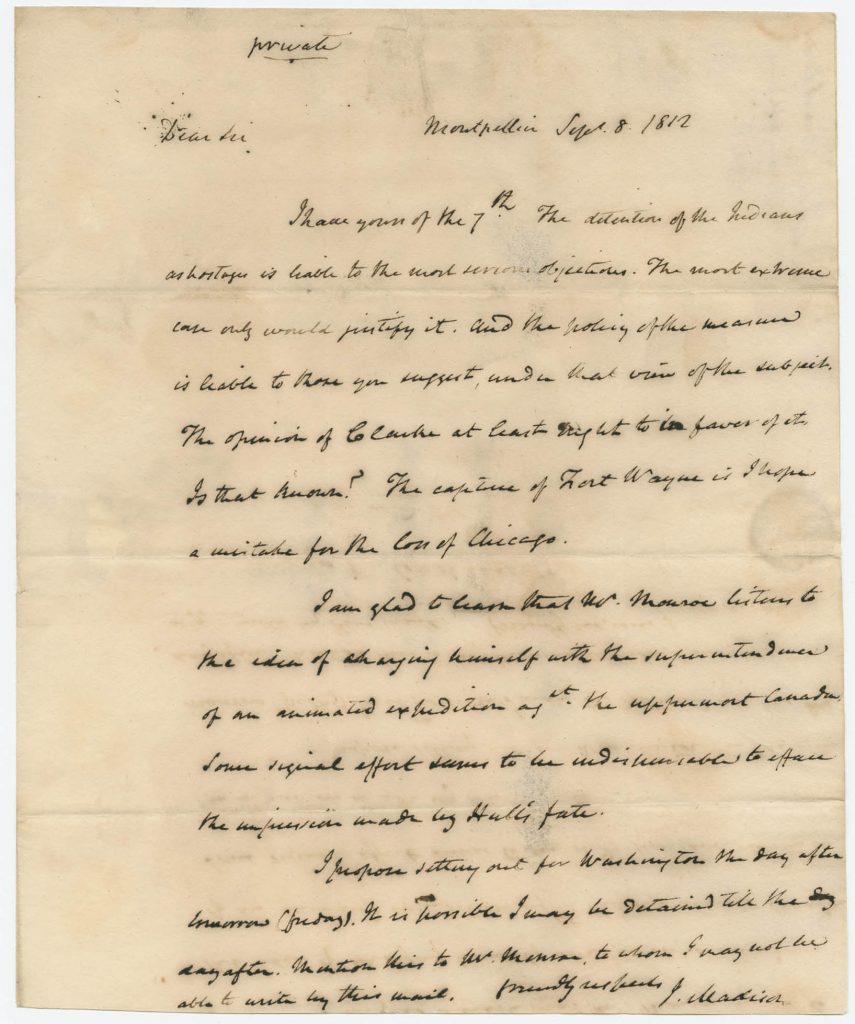 private
Dear Sir
Montpellier Sepr. 8. 1812
I have yours of the 7th. The detention of the Indians
as hostages is liable to the most serious objections. The most extreme
case only would justify it. And the policy of the measure
is liable to those you suggest, under that view of the subject.
The opinion of Clarke at least ought to be in favor of it.
Is that known? The capture of Fort Wayne is I hope
a mistake for the loss of Chicago.
I am glad to learn that Mr. Monroe listens to
the idea of charging himself with the superintendence
of an animated expedition agst. the uppermost Canada.
Some signal effort seems to be indispensable to efface
the impression made by Hull's fate.
I propose setting out for Washington the day after
tomorrow (friday). It is possible I may be detained till the day
day after. Mention this to Mr. Monroe, to whom I may not be
able to write by this mail. friendly respects J. Madison